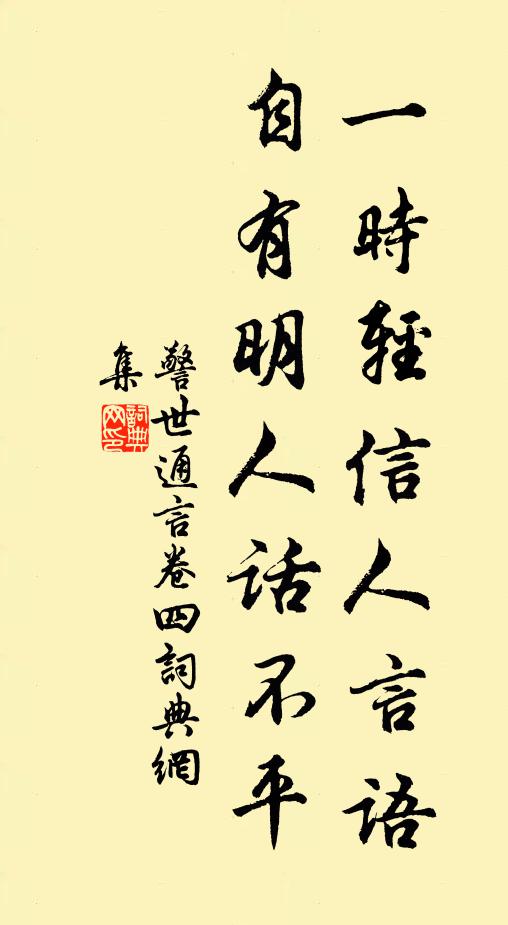 一時輕信人言語
自有明人話不平
警世通言卷四詞典網
集
詞典
网印